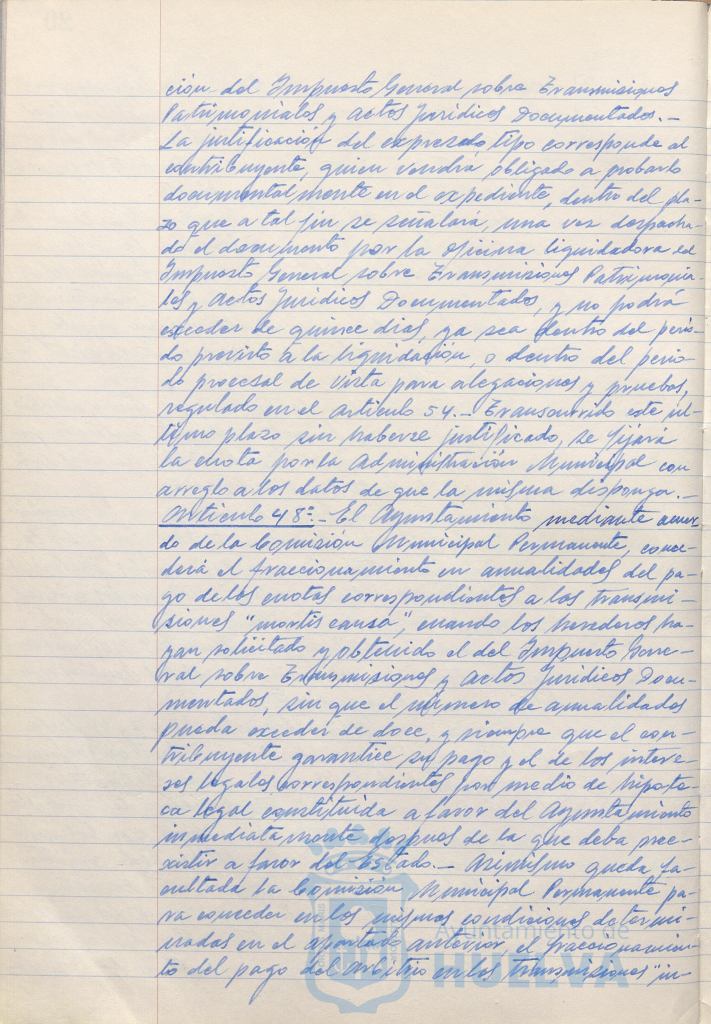 ción del Impuesto General sobre Transmisiones
Patrimoniales y Actos Jurídicos Documentados.-
La justificación del expresado tipo corresponde al
contribuyente, quien vendrá obligado a probarlo
documentalmente en el expediente, dentro del pla-
zo que a tal fin se señalará, una vez despacha-
do el documento por la oficina liquidadora del
Impuesto General sobre Transmisiones Patrimonia-
les y Actos Jurídicos Documentados, y no podrá
exceder de quince días, ya sea dentro del perio-
do previsto a la liquidación, o dentro del perio-
do procesal de vista para alegaciones y pruebas,
regulado en el artículo 54.- Transcurrido este úl-
timo plazo sin haberse justificado, se fijará
la cuota por la Administración Municipal con
arreglo a los datos de que la misma disponga.-
Artículo 48º.- El Ayuntamiento mediante acuer-
do de la Comisión Municipal Permanente, conce-
derá el fraccionamiento en anualidades del pa-
go de las cuotas correspondientes a las transmi-
siones "mortis causa", cuando los herederos ha-
yan solicitado y obtenido el del Impuesto Gene-
ral sobre Transmisiones y Actos Jurídicos Docu-
mentados, sin que el número de anualidades
pueda exceder de doce, y siempre que el con-
tribuyente garantice su pago y el de los intere-
ses legales correspondientes por medio de hipote-
ca legal constituida a favor del Ayuntamiento
inmediatamente después de la que deba pree-
xistir a favor del Estado.- Asimismo queda fa-
cultada la Comisión Municipal Permanente pa-
ra conceder en las mismas condiciones determi-
nadas en el apartado anterior, el fraccionamien-
to del pago del arbitrio en las transmisiones "in-
Ayuntamiento de
HUELVA